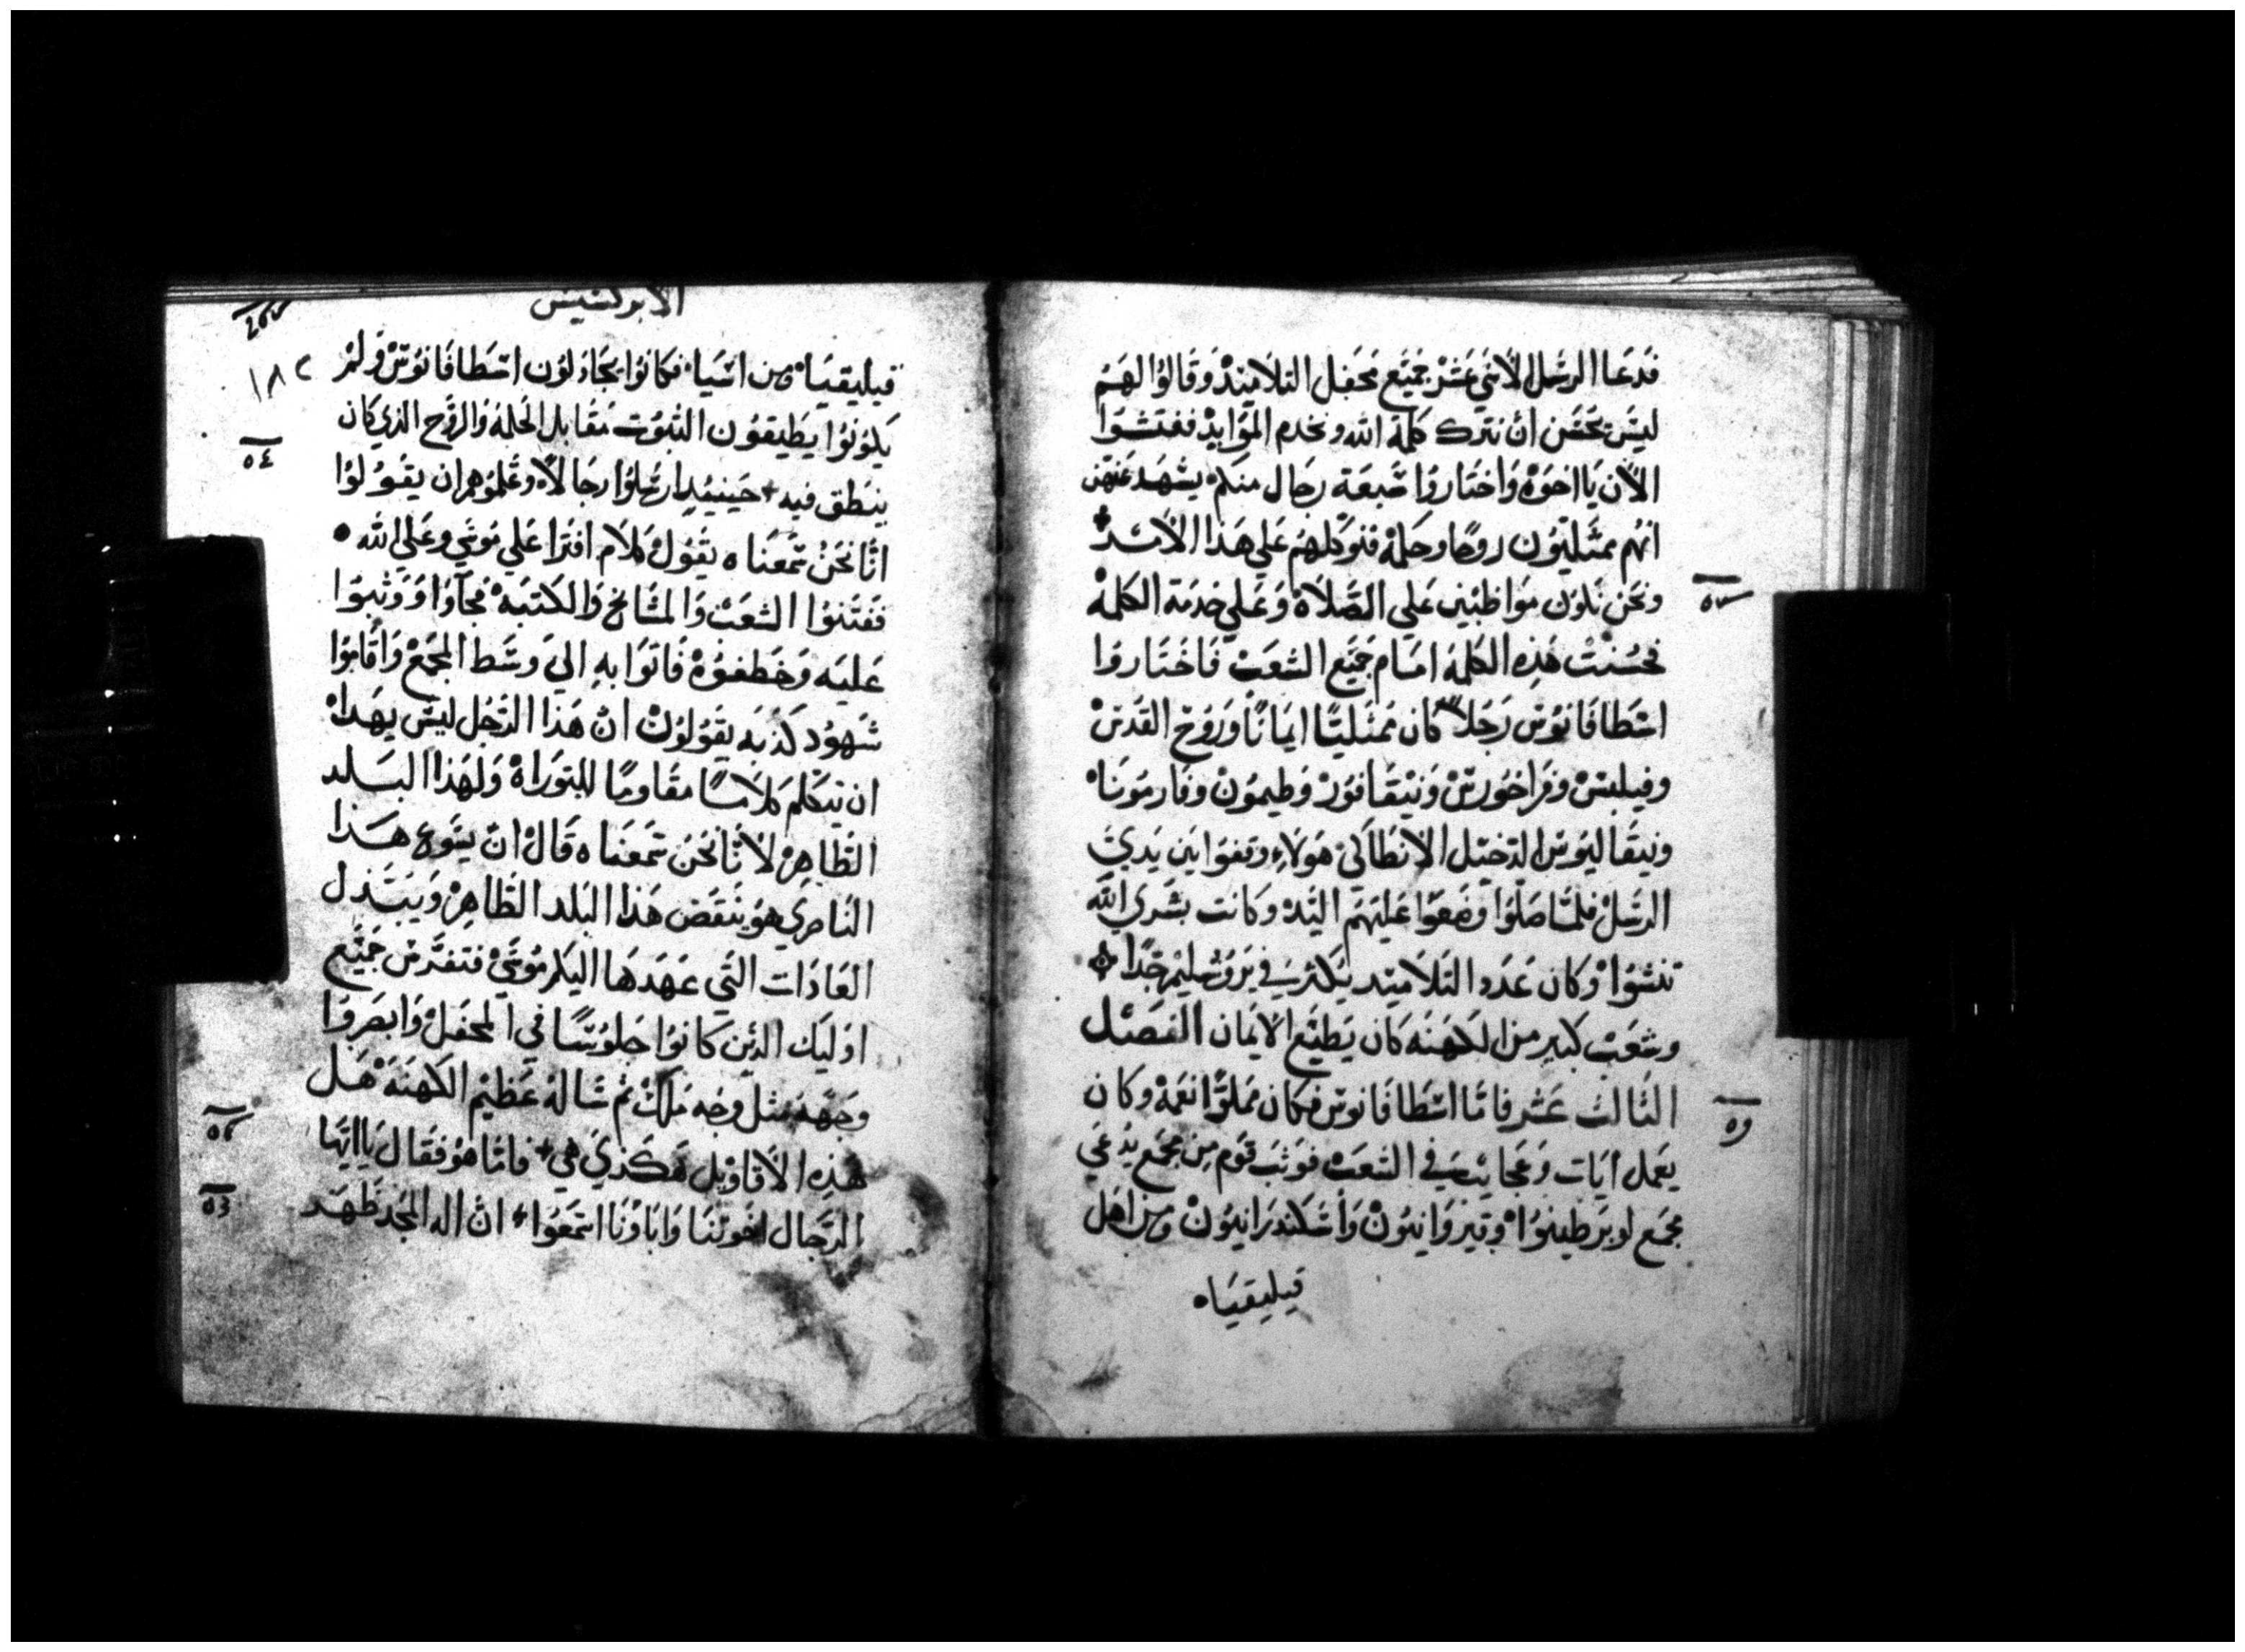 فدعا الرسل الاثني عشر جميع محفل التلاميذ وقالوا لهم
ليس يحسن ان نترك كلمة الله ونخدم الموايد ففتشوا
الان يا اخوة واختاروا سبعة رجال منكم يشهد عنهم
انهم ممتليون روحا وحكمة فنوكلهم على هذا الامر
ونحن نكون مواظبين علي الصلاة وعلي خدمة الكلمة
فحسنت هذه الكلمة امام جميع الشعب فاختاروا
اسطافانوس رجلا كان ممتليا ايمانا وروح القدس
وفيلبس وفراخورس ونيقانور وطيمون وفارمونا
ونيقالوس الدخيل الانطاكي هولاء وقفوا بين يدي
الرسل فلما صلوا وضعوا عليهم اليد وكانت بشري الله
تنشوا وكان عدد التلاميد يكثر في يروشليم جدا
وشعب كبير من الكهنه كان يطيع الايمان الفصل
الثالث عشر فاما اسطافانوس فكان مملوا نعمة وكان
يعمل ايات وعجايب في الشعب فوثب قوم من مجمع يدعي
مجمع لوبرطينوا وقيروانيون واسكندرانيون ومن اهل
قيليقيا
الابركسيس
١٨٢
قيليقيا ومن اسيا فكانوا يجادلون اسطافانوس ولم
يكونوا يطيقون الثبوت مقابل الحكمة والروح الذي كان
ينطق فيه حينيد ارسلوا رجالا وعلموهم ان يقولوا
انا نحن سمعناه يقول كلام افترا علي موسي وعلي الله
ففتنوا الشعب والمشايخ والكتبة فجاوا ووثبوا
عليه وخطفوه فاتوا به الي وسط المجمع واقاموا
شهود كذبه يقولون ان هذا الرجل ليس يهدا
ان يتكلم كلاما مقاوما للتوراة ولهذا البلد
الطاهر لاننا نحن سمعناه قال ان يسوع هذا
الناصري هو ينقض هذا البلد الطاهر ويبدل
العادات التي عهدها اليكم موسي فتفرس جميع
اوليك الدين كانوا جلوسا في المحفل وابصروا
وجهه مثل وجه ملك ثم ساله عظيم الكهنة هل
هذه الاقاويل هكذي هي فاما هو فقال يا ايها
الرجال اخوتنا واباونا اسمعوا ان اله المجد ظهر